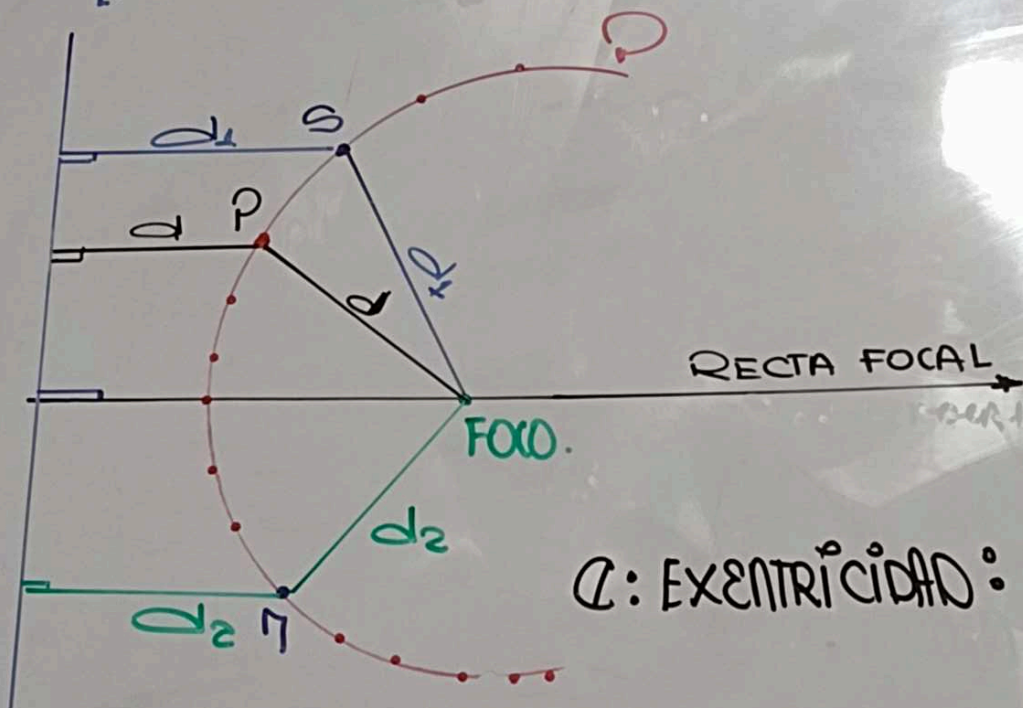 S
d1
P
d
d
d1
RECTA FOCAL
FOCO.
d2
e: EXENTRiCiDAD:
d2